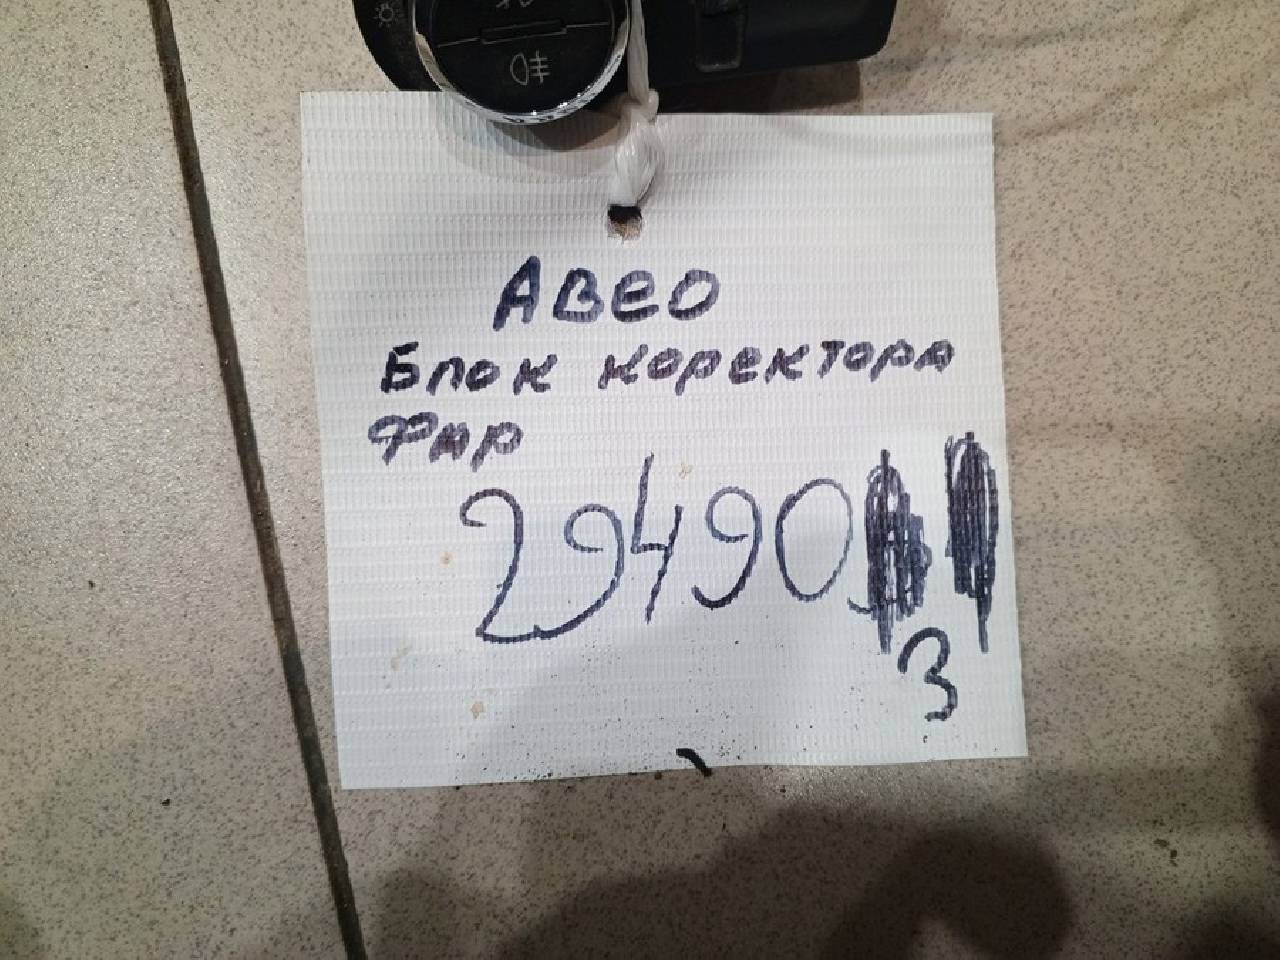 АВЕО
Блок коректора
Фар
29490
3